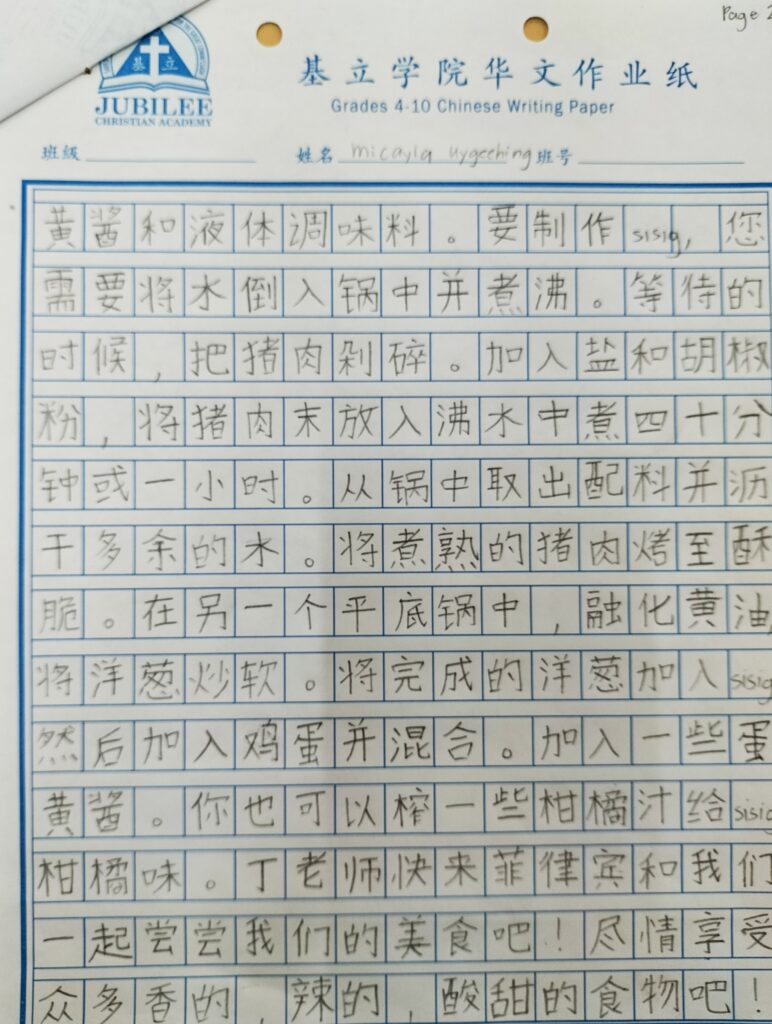 Page 2
基立
JUBILEE
CHRISTIAN ACADEMY
基立学院华文作业纸
Grades 4-10 Chinese Writing Paper
班级 姓名 micayla uygeching 班号
黄酱和液体调味料。要制作sisig,您
需要将水倒入锅中并煮沸。等待的
时候,把猪肉剁碎。加入盐和胡椒
粉,将猪肉末放入沸水中煮四十分
钟或一小时。从锅中取出配料并沥
干多余的水。将煮熟的猪肉烤至酥
脆。在另一个平底锅中,融化黄油,
将洋葱炒软。将完成的洋葱加入sisig
然后加入鸡蛋并混合。加入一些蛋
黄酱。你也可以榨一些柑橘汁给sisig
柑橘味。丁老师快来菲律宾和我们
一起尝尝我们的美食吧!尽情享受
众多香的,辣的,酸甜的食物吧!